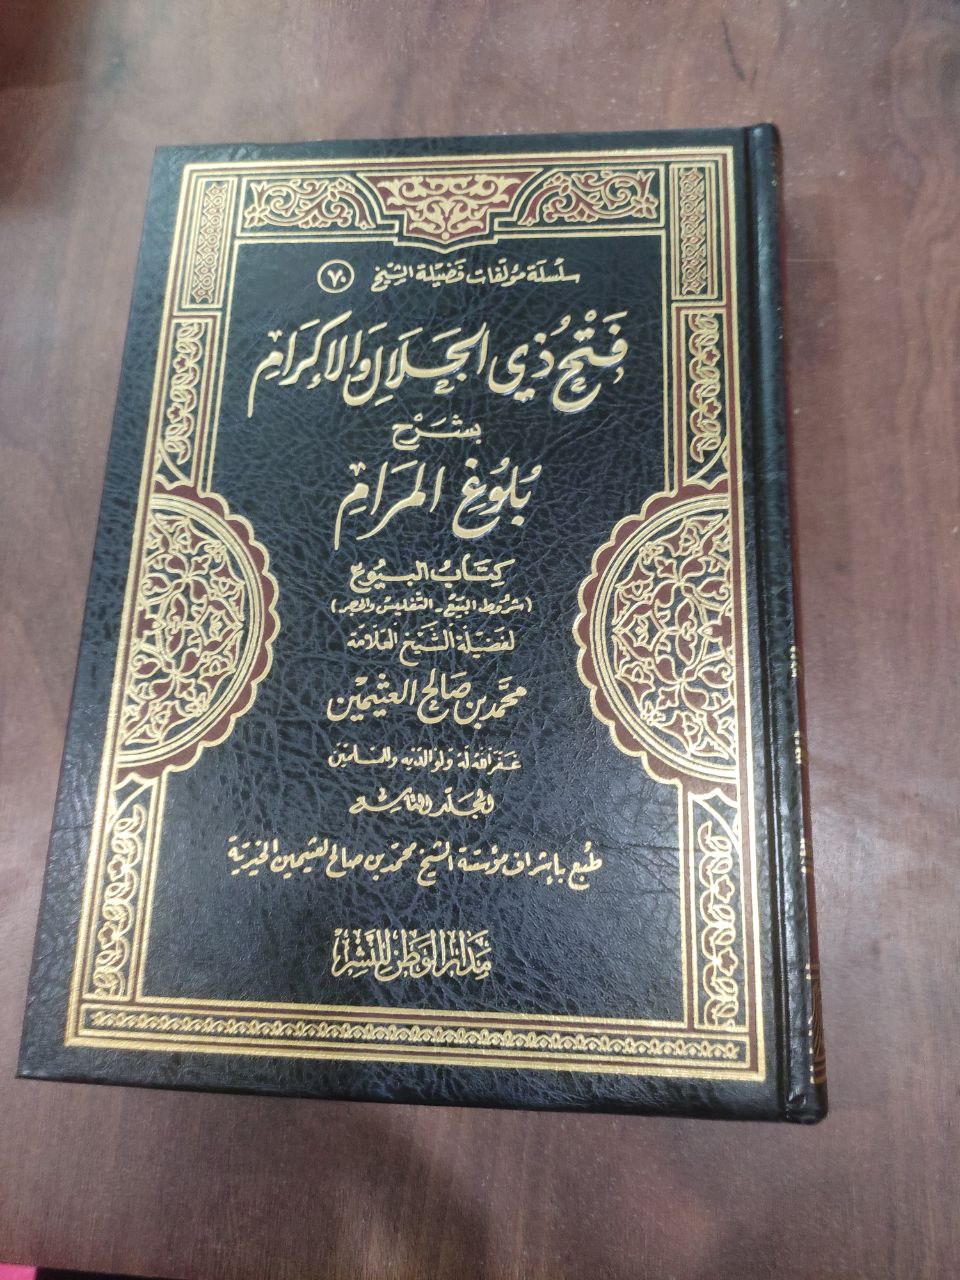 سلسلة مؤلفات فضيلة الشيخ ٧٠
فَتْحُ ذِي الجَلَالِ وَالإِكْرَامِ
بشَرْح
بُلُوغِ المَرَامِ
كِتَابُ البُيُوع
(شروط البيع - التفليس والحجر)
لفَضيلَة الشَّيخ العَلّامَة
محمَّد بن صَالح العثيمين
غفَر الله لَهُ ولوَالدَيه وللمُسلمين
المجلّد التاسع
طُبع بإشراف مؤسسة الشيخ محمّد بن صالح العثيمين الخيرية
مَدَارُ الوَطَن للنَّشر